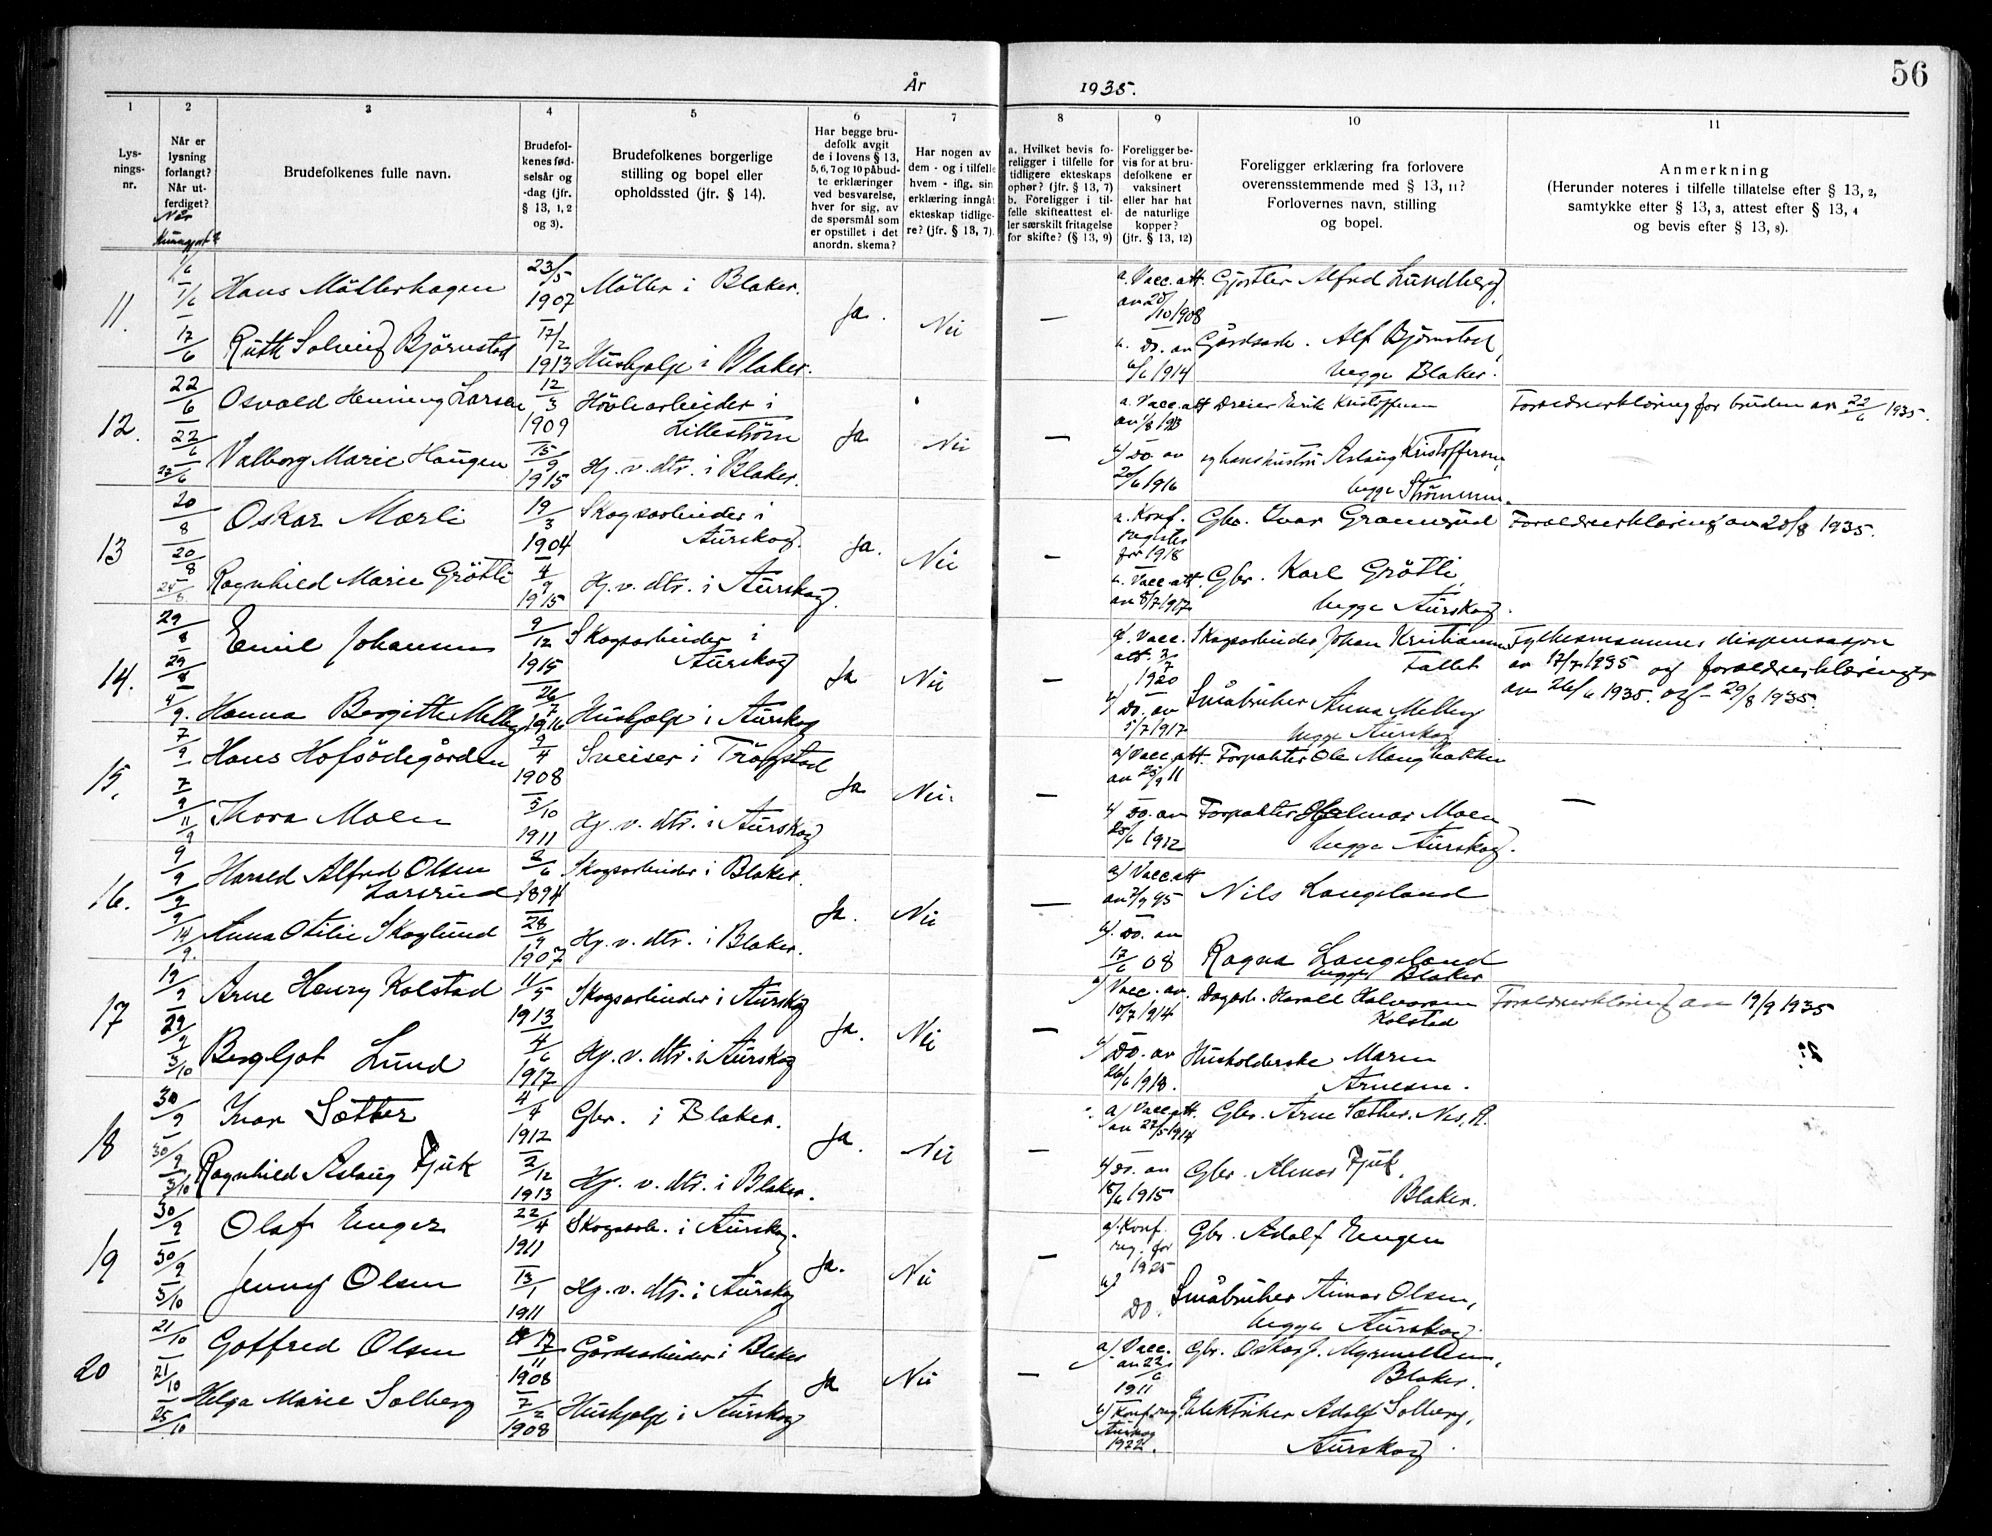 56
År 1935.
1
2
3
4
5
6
7
8
9
10
11
Lys-
nings-
nr.
Når er
lysning
forlangt?
Når ut-
ferdiget?
Når
kunngjort?
Brudefolkenes fulle navn.
Brudefol-
kenes fød-
selsår og
-dag (jfr.
§ 13, 1, 2
og 3).
Brudefolkenes borgerlige
stilling og bopel eller
opholdssted (jfr. § 14).
Har begge bru-
defolk avgit
de i lovens § 13,
5, 6, 7 og 10 påbud-
te erklæringer
ved besvarelse,
hver for sig, av
de spørsmål som
er opstillet i det
anordn. skema?
Har nogen av
dem - og i tilfelle
hvem - iflg. sin
erklæring inngåt
ekteskap tidlige-
re? (jfr. § 13, 7).
a. Hvilket bevis fo-
religger i tilfelle for
tidligere ekteskaps
ophør? (jfr. § 13, 7)
b. Foreligger i til-
felle skifteattest el-
ler særskilt fritagelse
for skifte? (§ 13, 9)
Foreligger be-
vis for at bru-
defolkene er
vaksinert
eller har hat
de naturlige
kopper?
(jfr. § 13, 12)
Foreligger erklæring fra forlovere
overensstemmende med § 13, 11?
Forlovernes navn, stilling
og bopel.
Anmerkning
(Herunder noteres i tilfelle tillatelse efter § 13, 2,
samtykke efter § 13, 3, attest efter § 13, 4
og bevis efter § 13, 8).
11.
1/6
1/6
17/6
Hans Möllerhagen
23/5
1907
Möller i Blaker.
Ja.
Nei
—
a. Vacc. att.
av 20/10 1908
Gjørtler Alfred Lundberg,
Ruth Solveig Björnstad
17/2
1913
Hushjelp i Blaker.
b. Do. av
6/6 1914
Gårdsarb. Alf Bjørnstad,
begge Blaker.
12.
22/6
22/6
27/6
Osvald Henning Larsen
12/3
1909
Hövlearbeider i
Lilleström
Ja
Nei
—
a. Vacc. att
av 1/8 1913
Dreier Erik Kristoffersen
Foreldreerklæring for bruden av 22/6 1935.
Valborg Marie Haugen
15/9
1915
Hj. v. dtr. i Blaker.
b) Do. av
20/6 1916
og hans hustru Aslaug Kristoffersen,
begge Strømmen.
13
20/8
20/8
25/8
Oskar Mærli
19/3
1904
Skogsarbeider i
Aurskog.
Ja.
Nei
—
a. Konf.
register
for 1918
Gbr. Ivar Gramsrud
Foreldreerklæring av 20/8 1935.
Ragnhild Marie Grötli
4/9
1915
Hj. v. dtr. i Aurskog.
b. Vacc. att.
av 8/7 1917
Gbr. Karl Grötli,
begge Aurskog.
14.
29/8
29/8
4/9.
Emil Johansen
9/12
1915
Skogsarbeider i
Aurskog
Ja
Nei
—
a. Vacc.
att. 3/7
1920
Skogsarbeider Johan Kristiansen
Fallet
Fylkesmannens dispensasjon
av 17/7 1935 og foreldreerklæringer
av 26/6 1935 og 29/8 1935.
Hanna Bergitte Melby
26/7
1916
Hushjelp i Aurskog
b) Do. av
5/7 1917
Småbruker Anna Melby
begge Aurskog
15.
7/9
7/9
11/9
Hans Hofsödegården
9/4
1908
Sveiser i Trögstad
Ja
Nei.
—
a) Vacc. att.
av 25/9 11
Forpakter Ole Mangbakken
—
Thora Moen
5/10
1911
Hj. v. dtr. i Aurskog
b) Do. av
25/6 1912
Forpakter Hjalmar Moen
begge Aurskog.
16.
9/9
9/9
14/9.
Harald Alfred Olsen
Larsrud
2/6
1894
Skogsarbeider i Blaker.
Ja.
Nei
—
a) Vacc. att
av 7/9 95
Nils Langeland
Anna Otilie Skoglund
28/9
1907
Hj. v. dtr. i Blaker.
b. Do. av
17/6 08
Ragna Langeland
begge Blaker
17
19/9
29/9
3/10
Arne Henry Kolstad
11/5
1913
Skogsarbeider i Aurskog
Ja.
Nei
—
a) Vacc. av.
10/7 1914
Dagarb. Harald Halvorsen
Kolstad
Foreldreerklæring av 19/9 1935
Bergljot Lund
4/6
1917
Hj. v. dtr. i Aurskog
b) Do. av
26/6 1918.
Husholderske Maren
Arnesen.
18
30/9
30/9
3/10
Ivar Sæther
4/4
1912
Gbr. i Blaker.
Ja.
Nei
—
a) Vacc. att.
av 27/5 1914
Gbr. Arne Sæther, Nes, R.
Ragnhild Aslaug Fjuk
2/12
1913
Hj. v. dtr. i Blaker.
b) Do. av
18/6 1915
Gbr. Almar Fjuk,
Blaker.
19
30/9
30/9
5/10
Olaf Enger
22/4
1911
Skogsarb. i Aurskog.
Ja.
Nei
—
a). Konf.
reg. for
1925
Gbr. Adolf Engen
Jenny Olsen
13/1
1911
Hj. v. dtr. i Aurskog
b)
Do.
Småbruker Einar Olsen,
begge Aurskog.
20
21/10
21/10
25/10
Gotfred Olsen
17/11
1908
Gårdsarbeider i Blaker
Ja
Nei
—
a) Vacc.
av 22/6
1911
Gbr. Oskar J. Myrmellem,
Blaker.
Helga Marie Solberg
2/2
1908
Hushjelp i Aurskog
b) Konf. reg.
Aurskog
1922.
Elektriker Adolf Solberg,
Aurskog.